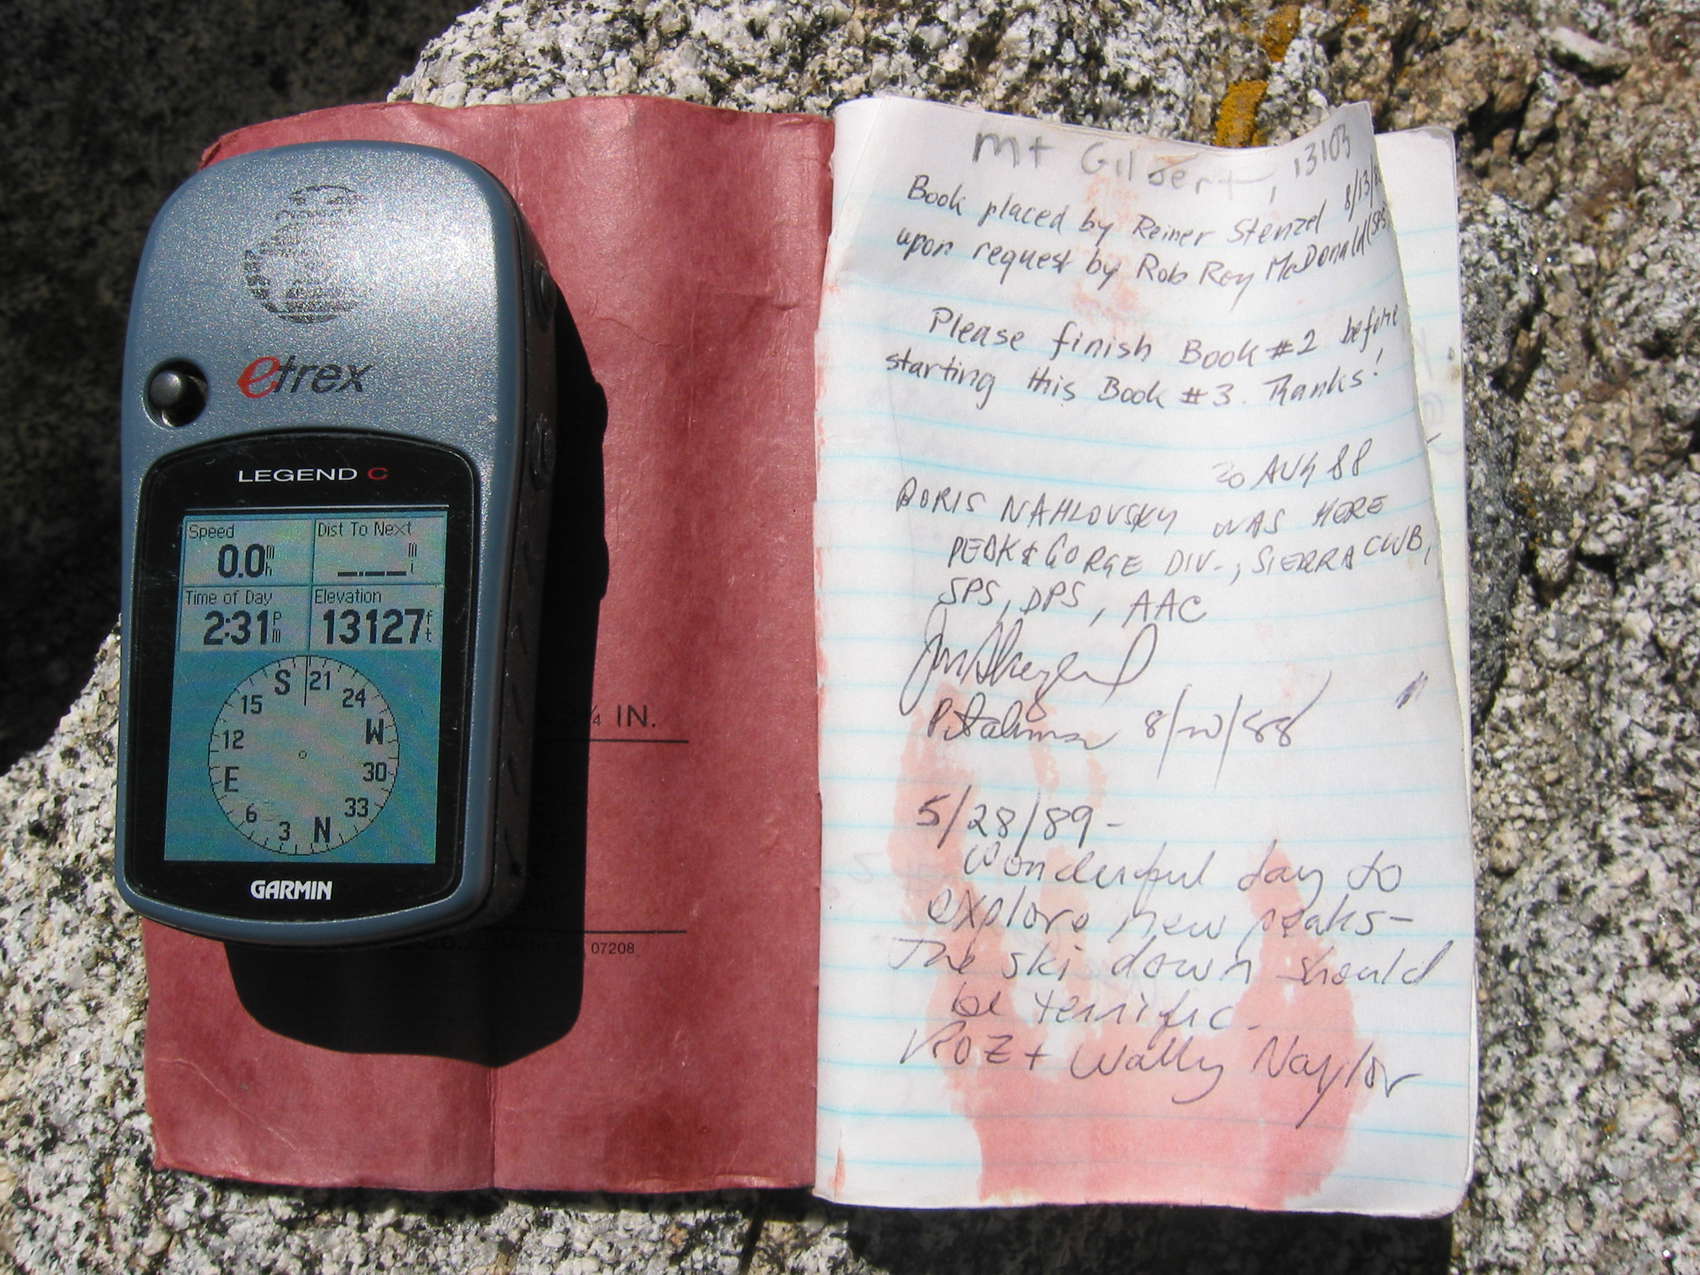 etrex
LEGEND C
Speed
0.0 mh
Dist To Next
_._ _ _ mi
Time of Day
2:31 Pm
Elevation
13127 ft
S 21 24 W 30 33 N 3 6 E 12 15
GARMIN
¼ IN.
CO.
07208
Mt Gilbert, 13103
Book placed by Reiner Stenzel 8/13/8
upon request by Rob Roy McDonald (SPS
Please finish Book #2 before
starting this Book #3. Thanks!
20 AUG 88
BORIS NAHLOVSKY WAS HERE
PEAK & GORGE DIV., SIERRA CLUB,
SPS, DPS, AAC
8/20/88
5/28/89 -
Wonderful day to
explore new peaks-
The ski down should
be terrific.
Roz + Wally Naylor